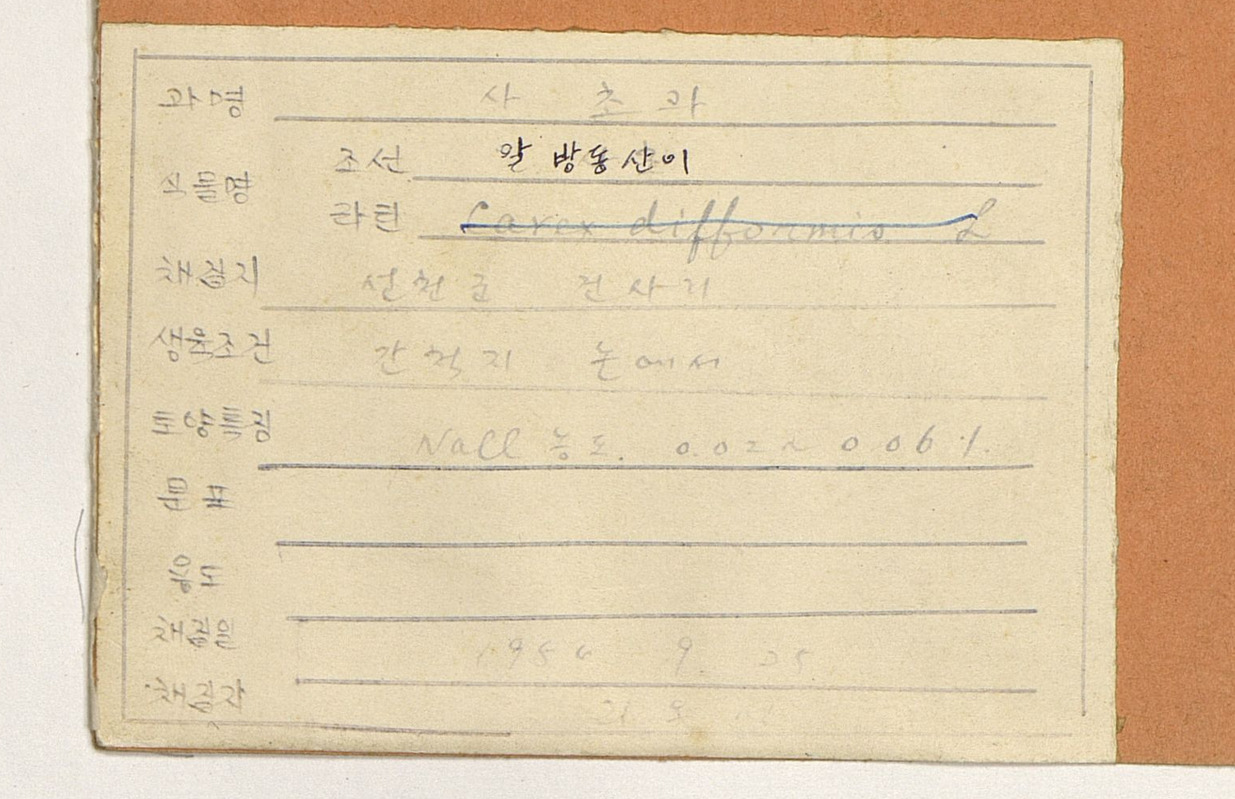 과명 사초과
조선 알방동산이
식물명
라틴 Carex difformis L
채집지 선천군 건사리
생육조건 간척지 논에서
토양특징 NaCl 농도. 0.02~0.06%.
분포
용도
채집일 9. 25
채집자